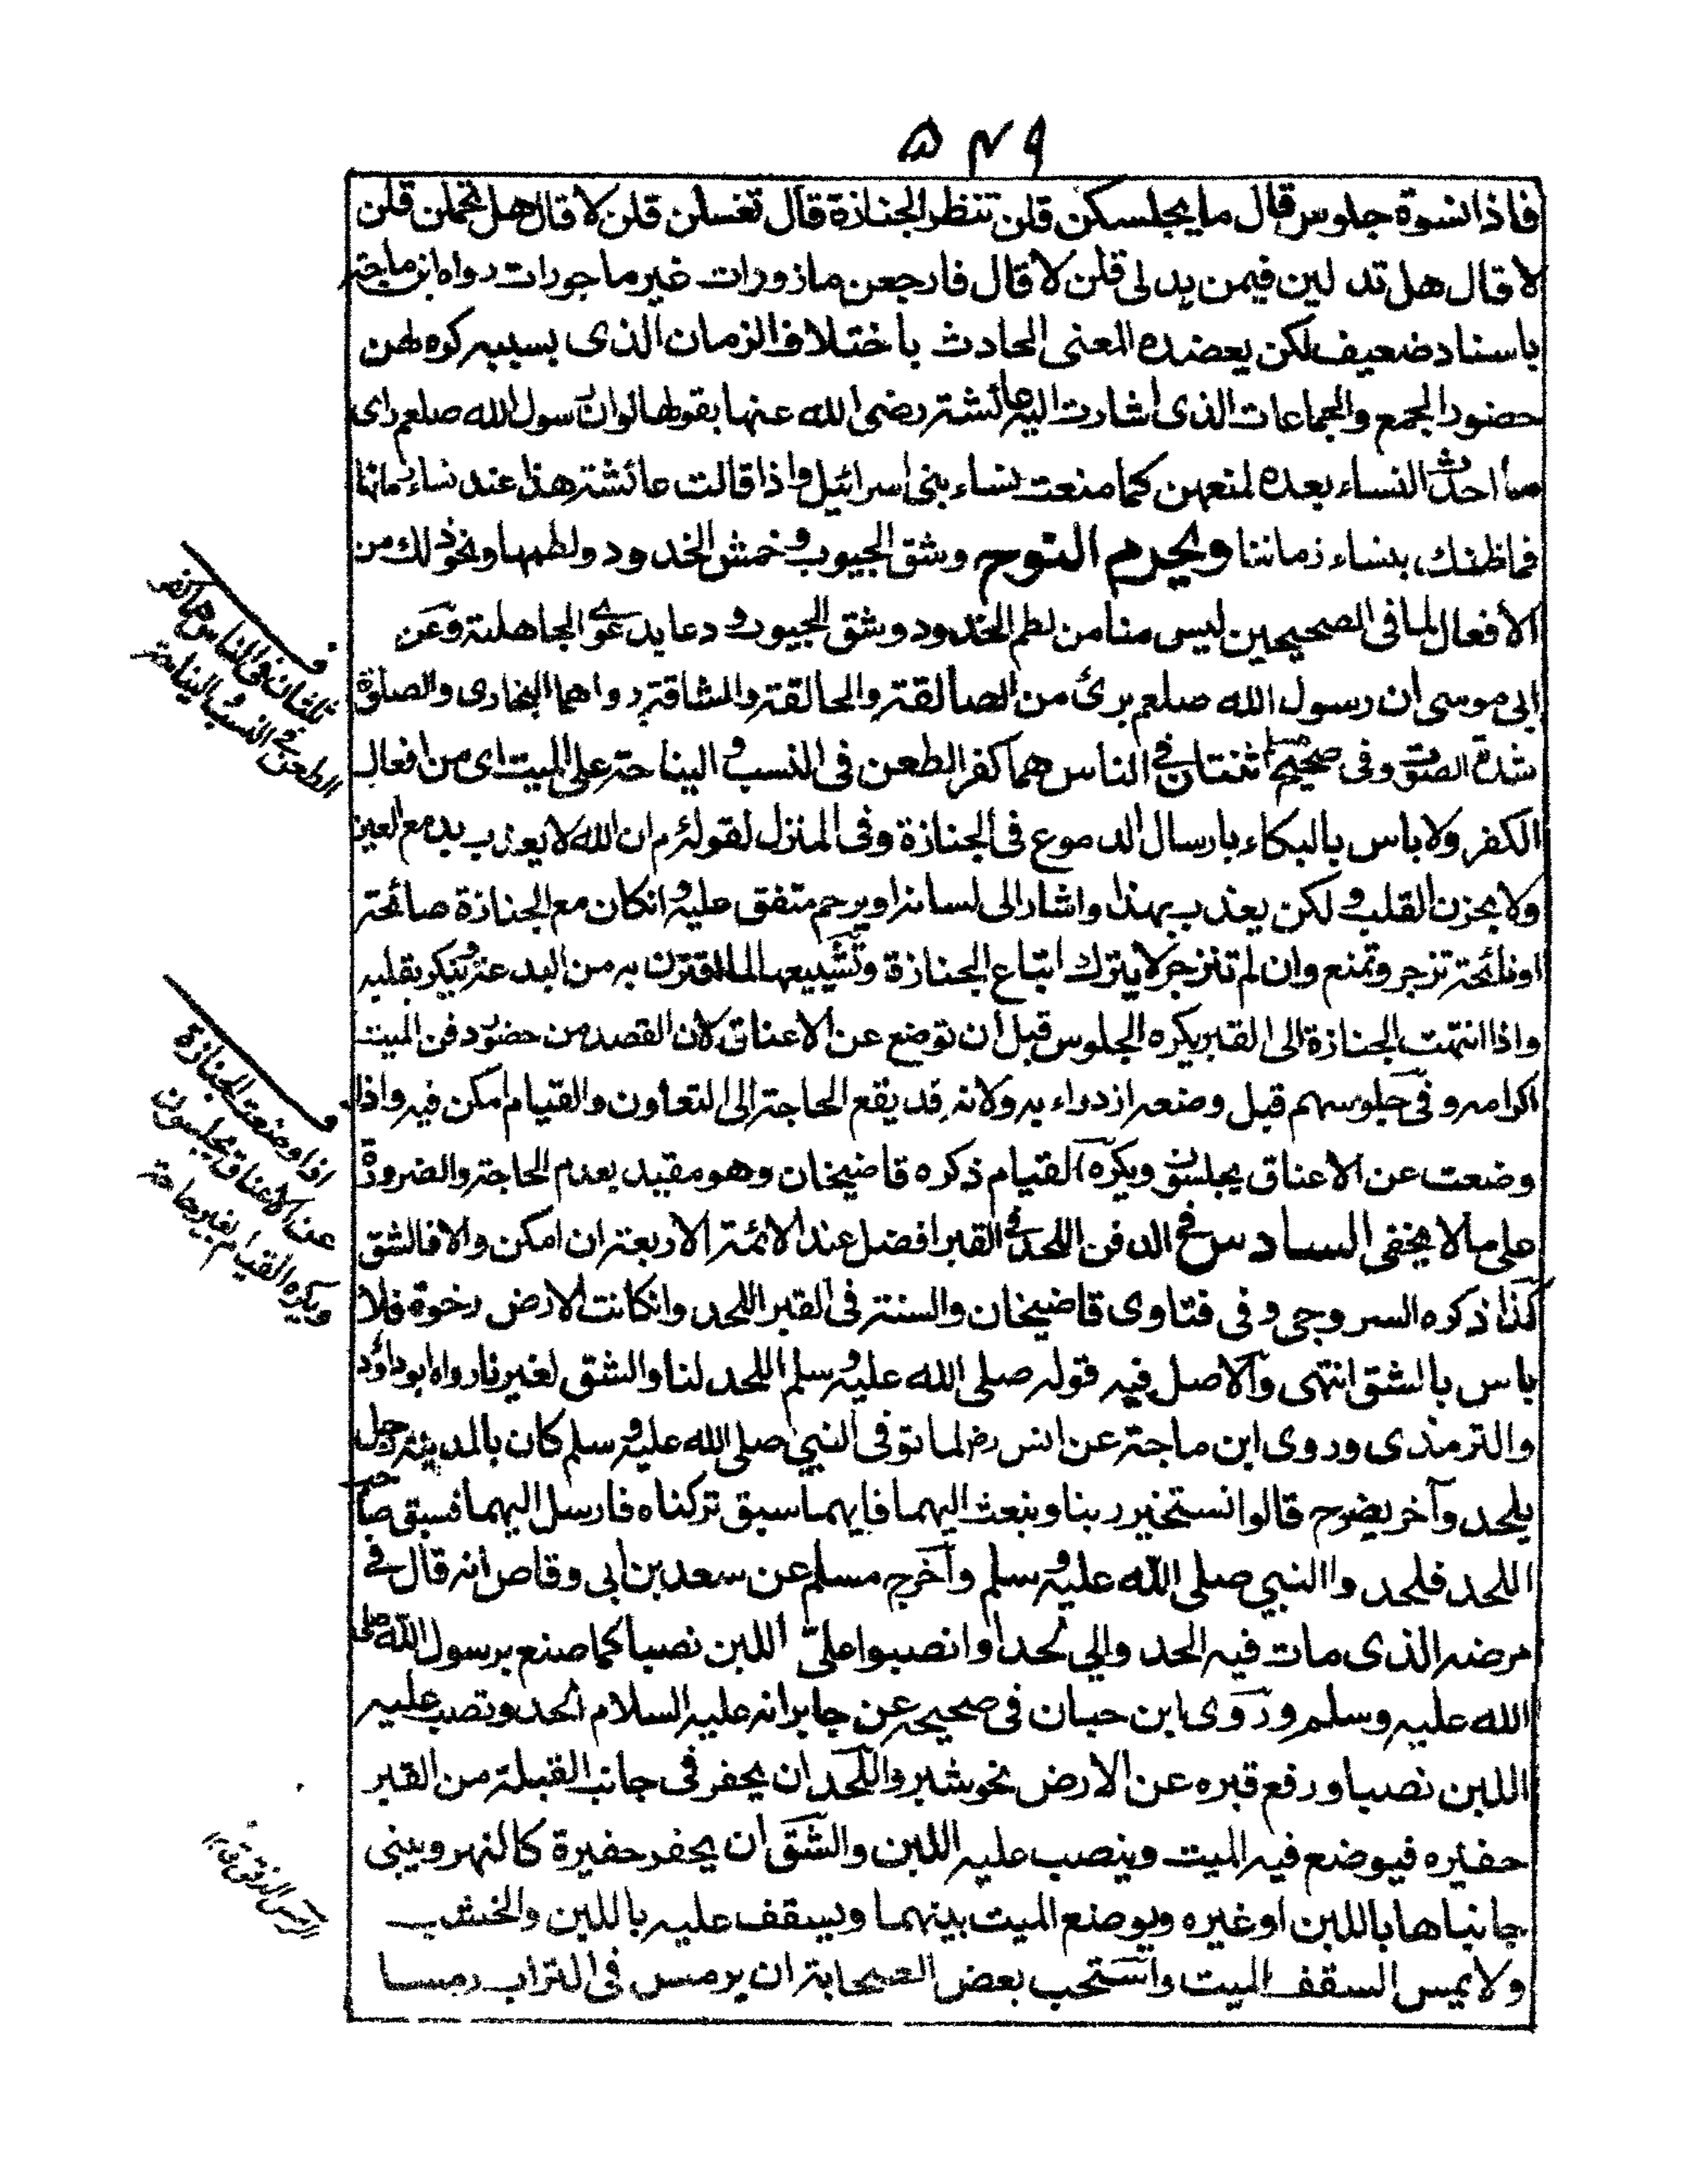 ۵۴۹
فاذا نسوة جلوس قال ما يجلسكن قلن تنظر الجنازة قال تغسلن قلن لا قال هل تحملن قلن
لا قال هل تدلين فيمن يدلى قلن لا قال فارجعن مازورات غير ماجورات رواه ابن ماجة
باسناد ضعيف لكن يعضده المعنى الحادث باختلاف الزمان الذى بسببه كره لهن
حضور الجمع والجماعات الذى اشارت اليه عائشة رضى الله عنها بقولها لو ان رسول الله صلعم راى
ما احدث النساء بعده لمنعهن كما منعت نساء بنى اسرائيل واذا قالت عائشة هذا عند نساء زمانها
فما ظنك بنساء زماننا ويحرم النوح وشق الجيوب وخمش الخدود ولطمها ونحو ذلك من
الافعال لما فى الصحيحين ليس منا من لطم الخدود وشق الجيوب ودعا بدعوى الجاهلية وعن
ابى موسى ان رسول الله صلعم برئ من الصالقة والحالقة والشاقة رواهما البخارى والصلق
شدة الصوت وفى صحيح مسلم ثنتان فى الناس هما كفر الطعن فى النسب والنياحة على الميت اى من افعال
الكفر ولا باس بالبكاء بارسال الدموع فى الجنازة وفى المنزل لقوله ۴م ان الله لا يعذب بدمع العين
ولا بحزن القلب ولكن يعذب بهذا واشار الى لسانه او يرحم متفق عليه وانكان مع الجنازة صائحة
او نائحة تزجر وتمنع وان لم تنزجر لا يترك اتباع الجنازة وتشييعها لما اقترن به من البدعة وينكر بقلبه
واذا انتهت الجنازة الى القبر يكره الجلوس قبل ان توضع عن الاعناق لان القصد من حضور دفن الميت
اكرامه وفى جلوسهم قبل وضعه ازدراء به ولانه قد يقع الحاجة الى التعاون والقيام امكن فيه واذا
وضعت عن الاعناق يجلسون ويكره القيام ذكره قاضيخان وهو مقيد بعدم الحاجة والضرورة
على ما لا يخفى السادس فى الدفن اللحد فى القبر افضل عند الائمة الاربعة ان امكن والا فالشق
كذا ذكره السروجى وفى فتاوى قاضيخان والسنة فى القبر اللحد وانكانت الارض رخوة فلا
باس بالشق انتهى والاصل فيه قوله صلى الله عليه وسلم اللحد لنا والشق لغيرنا رواه ابو داؤد
والترمذى وروى ابن ماجة عن انس رض لما توفى النبي صلى الله عليه وسلم كان بالمدينة رجل
يلحد وآخر يضرح قالوا نستخير ربنا ونبعث اليهما فايهما سبق تركناه فارسل اليهما فسبق صاحب
اللحد فلحدوا النبي صلى الله عليه وسلم وآخرج مسلم عن سعد بن ابى وقاص انه قال فى
مرضه الذى مات فيه الحدوا لي لحدا وانصبوا علىّ اللبن نصبا كما صنع برسول الله صلى
الله عليه وسلم وروى ابن حبان فى صحيحه عن جابر انه عليه السلام الحد ونصب عليه
اللبن نصبا ورفع قبره عن الارض نحو شبر واللحد ان يحفر فى جانب القبلة من القبر
حفيره فيوضع فيه الميت وينصب عليه اللبن والشق ان يحفر حفيرة كالنهر ويبنى
جانباها باللبن او غيره ويوضع الميت بينهما ويسقف عليه باللبن والخشب
ولا يمس السقف الميت واستحب بعض الصحابة ان يرمس فى التراب رمسا
ف
ثلثتان فى الناس هما كفر
الطعن فى النسب والنياحة
ف
اذا وضعت الجنازة
عن الاعناق يجلسون
ويكره القيام بغير حاجة